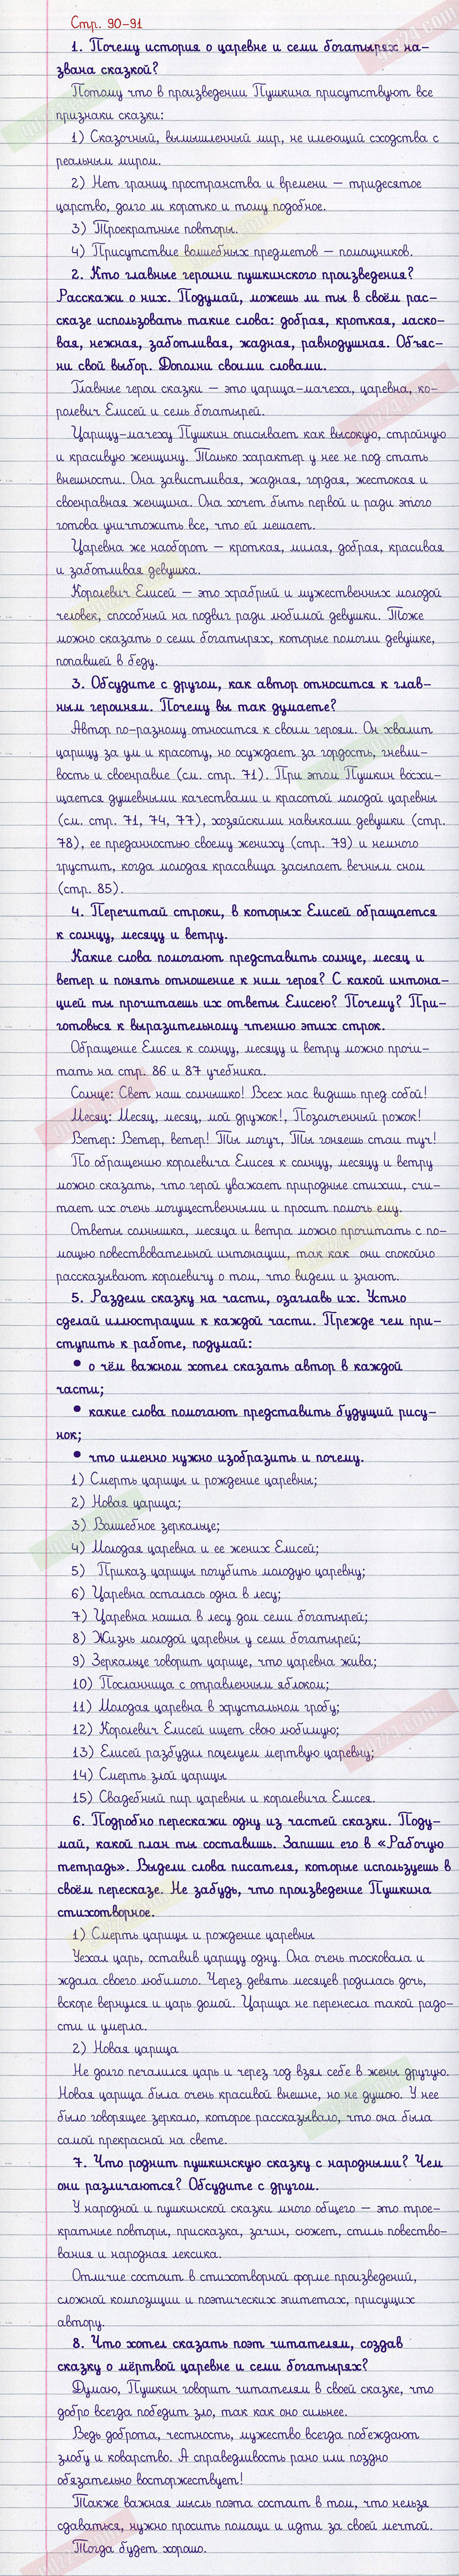 Стр. 90-91
1. Почему история о царевне и семи богатырях на-
звана сказкой?
Потому что в произведении Пушкина присутствуют все
признаки сказки:
1) Сказочный, вымышленный мир, не имеющий сходства с
реальным миром.
2) Нет границ пространства и времени – тридесятое
царство, долго ли коротко и тому подобное.
3) Троекратные повторы.
4) Присутствие волшебных предметов – помощников.
2. Кто главные героини пушкинского произведения?
Расскажи о них. Подумай, можешь ли ты в своём рас-
сказе использовать такие слова: добрая, кроткая, ласко-
вая, нежная, заботливая, жадная, равнодушная. Объяс-
ни свой выбор. Дополни своими словами.
Главные герои сказки – это царица-мачеха, царевна, ко-
ролевич Елисей и семь богатырей.
Царицу-мачеху Пушкин описывает как высокую, стройную
и красивую женщину. Только характер у нее не под стать
внешности. Она завистливая, жадная, гордая, жестокая и
своенравная женщина. Она хочет быть первой и ради этого
готова уничтожить все, что ей мешает.
Царевна же наоборот – кроткая, милая, добрая, красивая
и заботливая девушка.
Королевич Елисей – это храбрый и мужественных молодой
человек, способный на подвиг ради любимой девушки. Тоже
можно сказать о семи богатырях, которые помогли девушке,
попавшей в беду.
3. Обсудите с другом, как автор относится к глав-
ным героиням. Почему вы так думаете?
Автор по-разному относится к своим героям. Он хвалит
царицу за ум и красоту, но осуждает за гордость, гневли-
вость и своенравие (см. стр. 71). При этом Пушкин восхи-
щается душевными качествами и красотой молодой царевны
(см. стр. 71, 74, 77), хозяйскими навыками девушки (стр.
78), ее преданностью своему жениху (стр. 79) и немного
грустит, когда молодая красавица засыпает вечным сном
(стр. 85).
4. Перечитай строки, в которых Елисей обращается
к солнцу, месяцу и ветру.
Какие слова помогают представить солнце, месяц и
ветер и понять отношение к ним героя? С какой интона-
цией ты прочитаешь их ответы Елисею? Почему? При-
готовься к выразительному чтению этих строк.
Обращение Елисея к солнцу, месяцу и ветру можно прочи-
тать на стр. 86 и 87 учебника.
Солнце: Свет наш солнышко! Всех нас видишь пред собой!
Месяц: Месяц, месяц, мой дружок!, Позолоченный рожок!
Ветер: Ветер, ветер! Ты могуч, Ты гоняешь стаи туч!
По обращению королевича Елисея к солнцу, месяцу и ветру
можно сказать, что герой уважает природные стихии, счи-
тает их очень могущественными и просит помочь ему.
Ответы солнышка, месяца и ветра можно прочитать с по-
мощью повествовательной интонации, так как они спокойно
рассказывают королевичу о том, что видели и знают.
5. Раздели сказку на части, озаглавь их. Устно
сделай иллюстрации к каждой части. Прежде чем при-
ступить к работе, подумай:
• о чём важном хотел сказать автор в каждой
части;
• какие слова помогают представить будущий рису-
нок;
• что именно нужно изобразить и почему.
1) Смерть царицы и рождение царевны;
2) Новая царица;
3) Волшебное зеркальце;
4) Молодая царевна и ее жених Елисей;
5) Приказ царицы погубить молодую царевну;
6) Царевна осталась одна в лесу;
7) Царевна нашла в лесу дом семи богатырей;
8) Жизнь молодой царевны у семи богатырей;
9) Зеркальце говорит царице, что царевна жива;
10) Посланница с отравленным яблоком;
11) Молодая царевна в хрустальном гробу;
12) Королевич Елисей ищет свою любимую;
13) Елисей разбудил поцелуем мертвую царевну;
14) Смерть злой царицы
15) Свадебный пир царевны и королевича Елисея.
6. Подробно перескажи одну из частей сказки. Поду-
май, какой план ты составишь. Запиши его в «Рабочую
тетрадь». Выдели слова писателя, которые используешь в
своём пересказе. Не забудь, что произведение Пушкина
стихотворное.
1) Смерть царицы и рождение царевны
Уехал царь, оставив царицу одну. Она очень тосковала и
ждала своего любимого. Через девять месяцев родилась дочь,
вскоре вернулся и царь домой. Царица не перенесла такой радо-
сти и умерла.
2) Новая царица
Не долго печалился царь и через год взял себе в жены другую.
Новая царица была очень красивой внешне, но не душою. У нее
было говорящее зеркало, которое рассказывало, что она была
самой прекрасной на свете.
7. Что роднит пушкинскую сказку с народными? Чем
они различаются? Обсудите с другом.
У народной и пушкинской сказки много общего – это трое-
кратные повторы, присказка, зачин, сюжет, стиль повество-
вания и народная лексика.
Отличие состоит в стихотворной форме произведений,
сложной композиции и поэтических эпитетах, присущих
автору.
8. Что хотел сказать поэт читателям, создав
сказку о мёртвой царевне и семи богатырях?
Думаю, Пушкин говорит читателям в своей сказке, что
добро всегда победит зло, так как оно сильнее.
Ведь доброта, честность, мужество всегда побеждают
злобу и коварство. А справедливость рано или поздно
обязательно восторжествует!
Также важная мысль поэта состоит в том, что нельзя
сдаваться, нужно просить помощи и идти за своей мечтой.
Тогда будет хорошо.